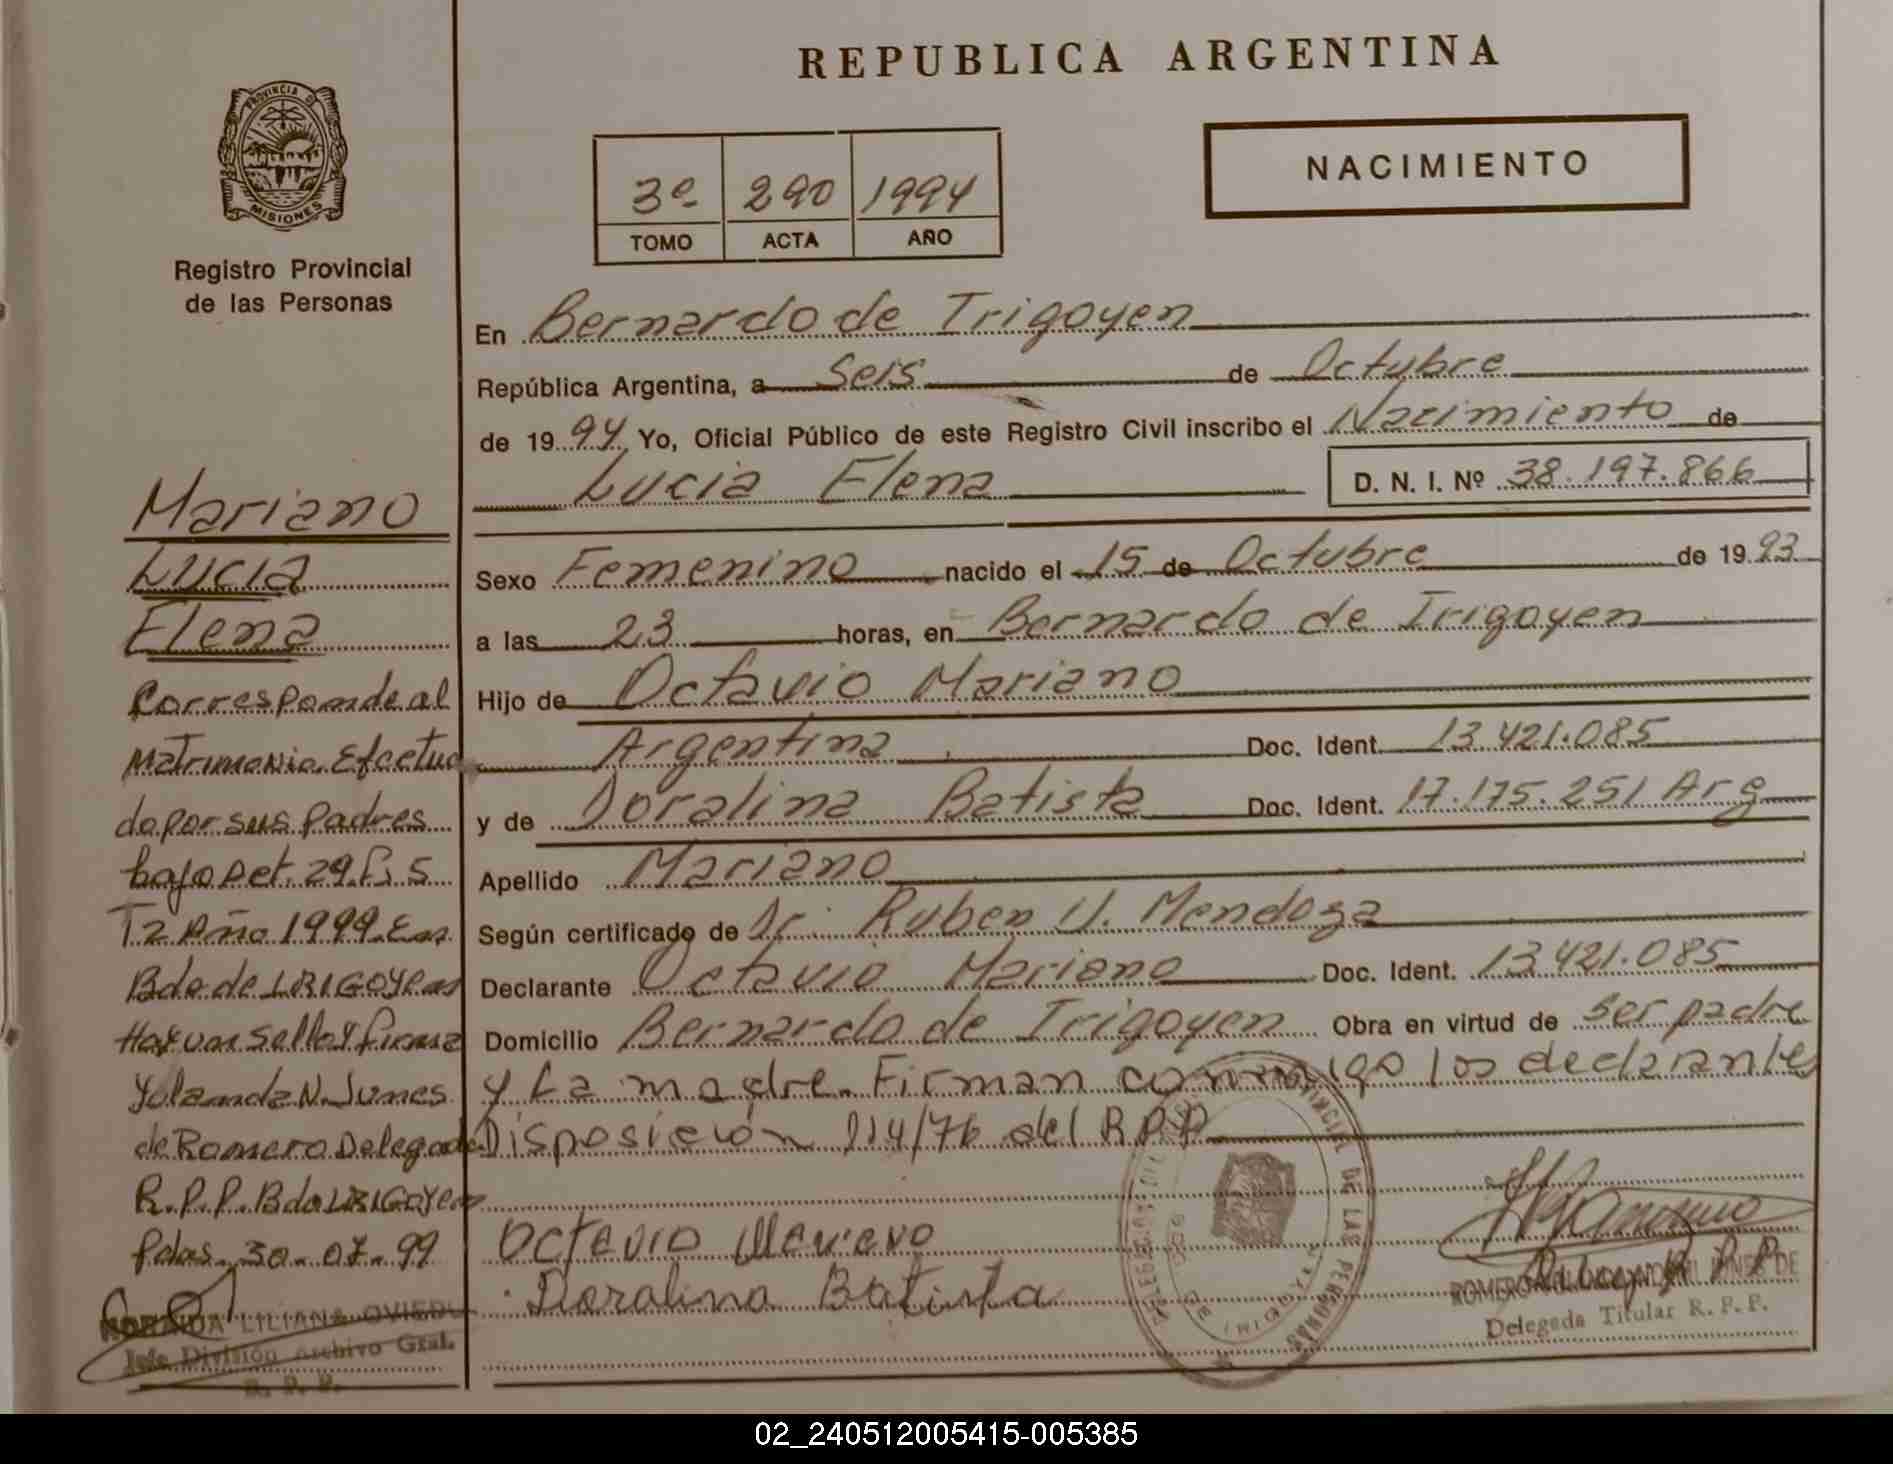 REPUBLICA ARGENTINA
PROVINCIA DE
MISIONES
Registro Provincial
de las Personas
NACIMIENTO
3º 290 1994
TOMO ACTA AÑO
En Bernardo de Irigoyen
República Argentina, a Seis de Octubre
de 1994 Yo, Oficial Público de este Registro Civil inscribo el Nacimiento de
Lucia Elena D. N. I. Nº 38.197.866
Sexo Femenino nacido el 15 de Octubre de 1993
a las 23 horas, en Bernardo de Irigoyen
Hijo de Octavio Mariano
Argentina Doc. Ident. 13.421.085
y de Doralina Batista Doc. Ident. 17.175.251 Arg
Apellido Mariano
Según certificado de Dr. Ruben U. Mendoza
Declarante Octavio Mariano Doc. Ident. 13421.085
Domicilio Bernardo de Irigoyen Obra en virtud de ser padre
y La madre. Firman conmigo los declarantes
Disposición 114/76 del R.P.P
Octavio Mariano
Doralina Batista
Delegada Titular R. P. P.
Mariano
Lucia
Elena
Corresponde al
Matrimonio Efectua
do por sus Padres
bajo Det. 29. F. 5
T2 Año 1999. En
Bdo de IRIGOYEN
Hay un Sello y firma
Yolanda N. Junes
de Romero Delegada
R.P.P. Bdo IRIGOYEN
Pdas. 30-07-99
LILIANA OVIEDO
Jefe División Archivo Gral.
R. P. P.
02_240512005415-005385